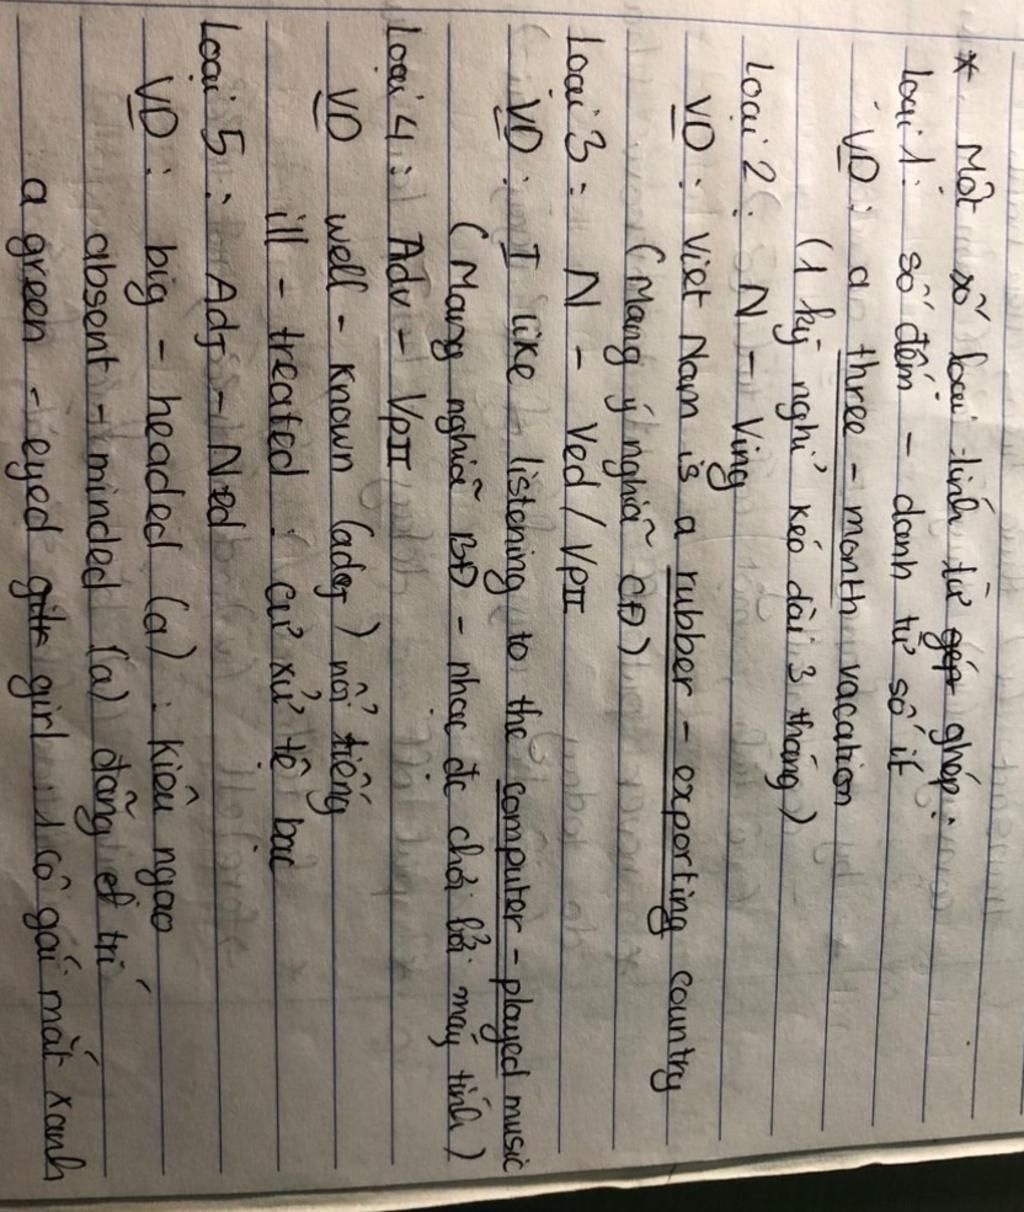 * Một số loại tính từ ghép:
Loại 1: số đếm - danh từ số ít
VD: a three - month vacation
(1 kỳ nghỉ kéo dài 3 tháng)
Loại 2: N - Ving
VD: Viet Nam is a rubber - exporting country
(Mang ý nghĩa CĐ)
Loại 3: N - Ved / VpII
VD: I like listening to the computer - played music
(Mang nghĩa BĐ - nhạc đc chơi bởi máy tính)
Loại 4: Adv - VpII
VD well - known (adj) nổi tiếng
ill - treated: cư xử tệ bạc
Loại 5: Adj - Ned
VD: big - headed (a): kiêu ngạo
absent - minded (a) đãng trí
a green - eyed girl: 1 cô gái mắt xanh